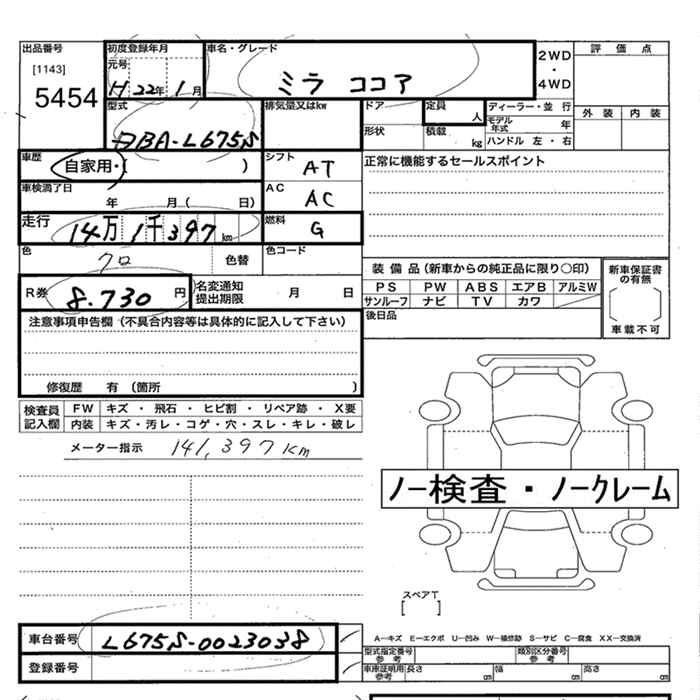 出品番号
[1143]
5454
初度登録年月
元号
H 22年 1月
車名・グレード
ミラ ココア
2WD
・
4WD
評価点
外装 内装
型式
DBA-L675S
排気量又はkw
ドア
形状
定員
人
積載
kg
ディーラー・並行
モデル年式 年
ハンドル 左・右
車歴
自家用・( )
シフト
AT
正常に機能するセールスポイント
車検満了日
年 月( 日)
AC
AC
走行
14万1千397km
燃料
G
色
クロ
色替
色コード
R券 8.730 円
名変通知
提出期限
月 日
装備品(新車からの純正品に限り○印)
PS PW ABS エアB アルミW
サンルーフ ナビ TV カワ
後日品
新車保証書
の有無
車載不可
注意事項申告欄(不具合内容等は具体的に記入して下さい)
修復歴 有(箇所 )
検査員
記入欄
FW キズ・飛石・ヒビ割・リペア跡・X要
内装 キズ・汚レ・コゲ・穴・スレ・キレ・破レ
メーター指示 141,397km
ノー検査・ノークレーム
スペアT
[ ]
車台番号 L675S-0023038
登録番号
A―キズ E―エクボ U―凹み W―補修跡 S―サビ C―腐食 XX―交換済
型式指定番号
参考
類別区分番号
参考
車庫証明用
参考
長さ cm 幅 cm 高さ cm